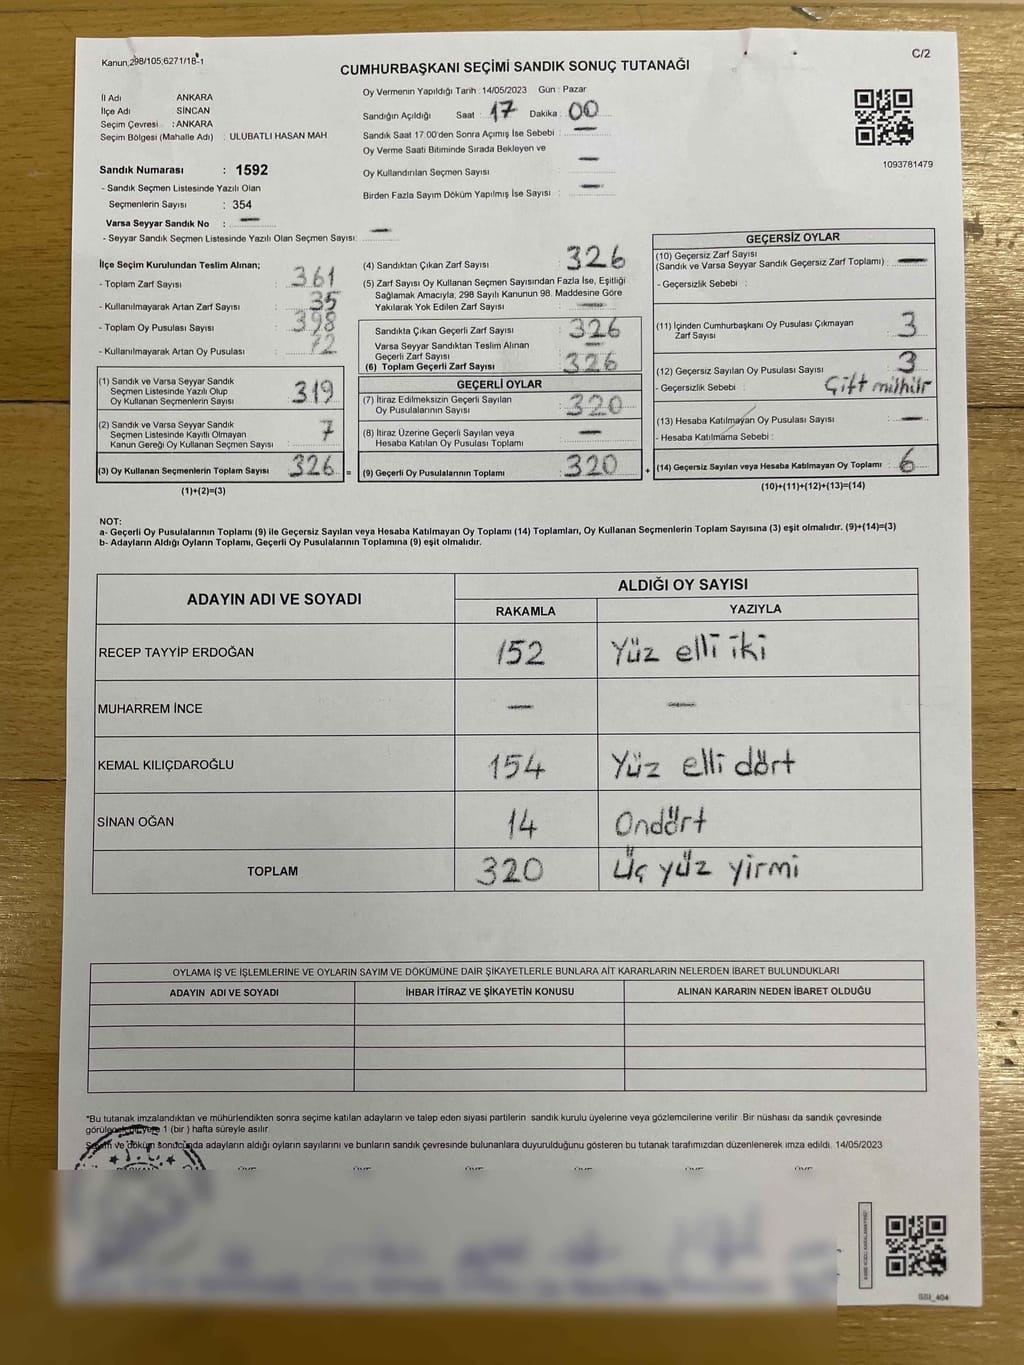 Kanun,298/105,6271/18-1
C/2
CUMHURBAŞKANI SEÇİMİ SANDIK SONUÇ TUTANAĞI
İl Adı ANKARA
İlçe Adı SİNCAN
Seçim Çevresi : ANKARA
Seçim Bölgesi (Mahalle Adı) : ULUBATLI HASAN MAH
Sandık Numarası : 1592
- Sandık Seçmen Listesinde Yazılı Olan
Seçmenlerin Sayısı : 354
Varsa Seyyar Sandık No : —
- Seyyar Sandık Seçmen Listesinde Yazılı Olan Seçmen Sayısı: —
Oy Vermenin Yapıldığı Tarih : 14/05/2023 Gün : Pazar
Sandığın Açıldığı Saat : 17 Dakika : 00
Sandık Saat 17:00'den Sonra Açımış İse Sebebi : —
Oy Verme Saati Bitiminde Sırada Bekleyen ve
Oy Kullandırılan Seçmen Sayısı : —
Birden Fazla Sayım Döküm Yapılmış İse Sayısı : —
1093781479
İlçe Seçim Kurulundan Teslim Alınan;
- Toplam Zarf Sayısı : 361
- Kullanılmayarak Artan Zarf Sayısı : 35
- Toplam Oy Pusulası Sayısı : 398
- Kullanılmayarak Artan Oy Pusulası : 72
(1) Sandık ve Varsa Seyyar Sandık
Seçmen Listesinde Yazılı Olup
Oy Kullanan Seçmenlerin Sayısı : 319
(2) Sandık ve Varsa Seyyar Sandık
Seçmen Listesinde Kayıtlı Olmayan
Kanun Gereği Oy Kullanan Seçmen Sayısı : 7
(3) Oy Kullanan Seçmenlerin Toplam Sayısı : 326 =
(1)+(2)=(3)
(4) Sandıktan Çıkan Zarf Sayısı : 326
(5) Zarf Sayısı Oy Kullanan Seçmen Sayısından Fazla İse, Eşitliği
Sağlamak Amacıyla; 298 Sayılı Kanunun 98. Maddesine Göre
Yakılarak Yok Edilen Zarf Sayısı : —
Sandıkta Çıkan Geçerli Zarf Sayısı : 326
Varsa Seyyar Sandıktan Teslim Alınan
Geçerli Zarf Sayısı : —
(6) Toplam Geçerli Zarf Sayısı : 326
GEÇERLİ OYLAR
(7) İtiraz Edilmeksizin Geçerli Sayılan
Oy Pusulalarının Sayısı : 320
(8) İtiraz Üzerine Geçerli Sayılan veya
Hesaba Katılan Oy Pusulası Toplamı : —
(9) Geçerli Oy Pusulalarının Toplamı : 320 +
GEÇERSİZ OYLAR
(10) Geçersiz Zarf Sayısı
(Sandık ve Varsa Seyyar Sandık Geçersiz Zarf Toplamı) : —
- Geçersizlik Sebebi :
(11) İçinden Cumhurbaşkanı Oy Pusulası Çıkmayan
Zarf Sayısı : 3
(12) Geçersiz Sayılan Oy Pusulası Sayısı : 3
- Geçersizlik Sebebi : Çift mühür
(13) Hesaba Katılmayan Oy Pusulası Sayısı : —
- Hesaba Katılmama Sebebi :
(14) Geçersiz Sayılan veya Hesaba Katılmayan Oy Toplamı : 6
(10)+(11)+(12)+(13)=(14)
NOT:
a- Geçerli Oy Pusulalarının Toplamı (9) ile Geçersiz Sayılan veya Hesaba Katılmayan Oy Toplamı (14) Toplamları, Oy Kullanan Seçmenlerin Toplam Sayısına (3) eşit olmalıdır. (9)+(14)=(3)
b- Adayların Aldığı Oyların Toplamı, Geçerli Oy Pusulalarının Toplamına (9) eşit olmalıdır.
ADAYIN ADI VE SOYADI ALDIĞI OY SAYISI
RAKAMLA YAZIYLA
RECEP TAYYİP ERDOĞAN 152 Yüz elli iki
MUHARREM İNCE — —
KEMAL KILIÇDAROĞLU 154 Yüz elli dört
SİNAN OĞAN 14 Ondört
TOPLAM 320 Üç yüz yirmi
OYLAMA İŞ VE İŞLEMLERİNE VE OYLARIN SAYIM VE DÖKÜMÜNE DAİR ŞİKAYETLERLE BUNLARA AİT KARARLARIN NELERDEN İBARET BULUNDUKLARI
ADAYIN ADI VE SOYADI İHBAR İTİRAZ VE ŞİKAYETİN KONUSU ALINAN KARARIN NEDEN İBARET OLDUĞU
*Bu tutanak imzalandıktan ve mühürlendikten sonra seçime katılan adayların ve talep eden siyasi partilerin sandık kurulu üyelerine veya gözlemcilerine verilir. Bir nüshası da sandık çevresinde
1 (bir) hafta süreyle asılır.
ve döküm sonucunda adayların aldığı oyların sayılarını ve bunların sandık çevresinde bulunanlara duyurulduğunu gösteren bu tutanak tarafımızdan düzenlenerek imza edildi. 14/05/2023
SSI_404